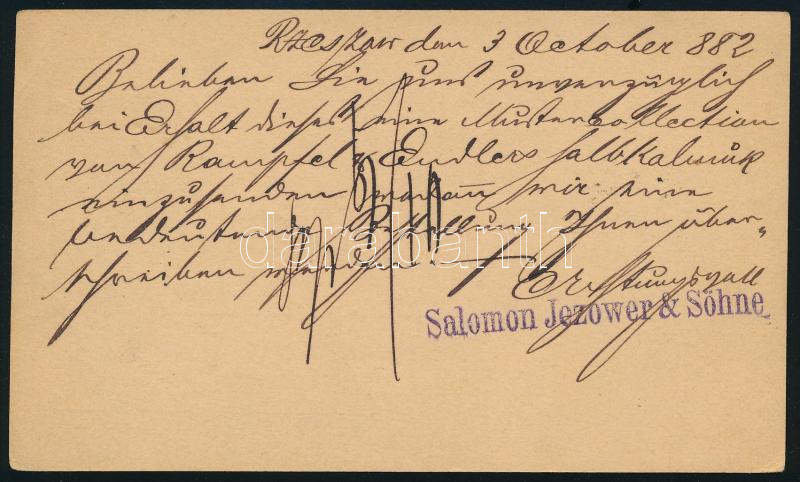 Rzeszow den 3 October 882
Belieben Sie uns unverzüglich
bei Erhalt dieses eine Mustercollection
von Rampfel & Endlers halbkalmuk
einzusenden wir eine
bedeutende Bestellung Ihnen über-
schreiben werden.
Achtungsvoll
Salomon Jezower & Söhne
darabanth